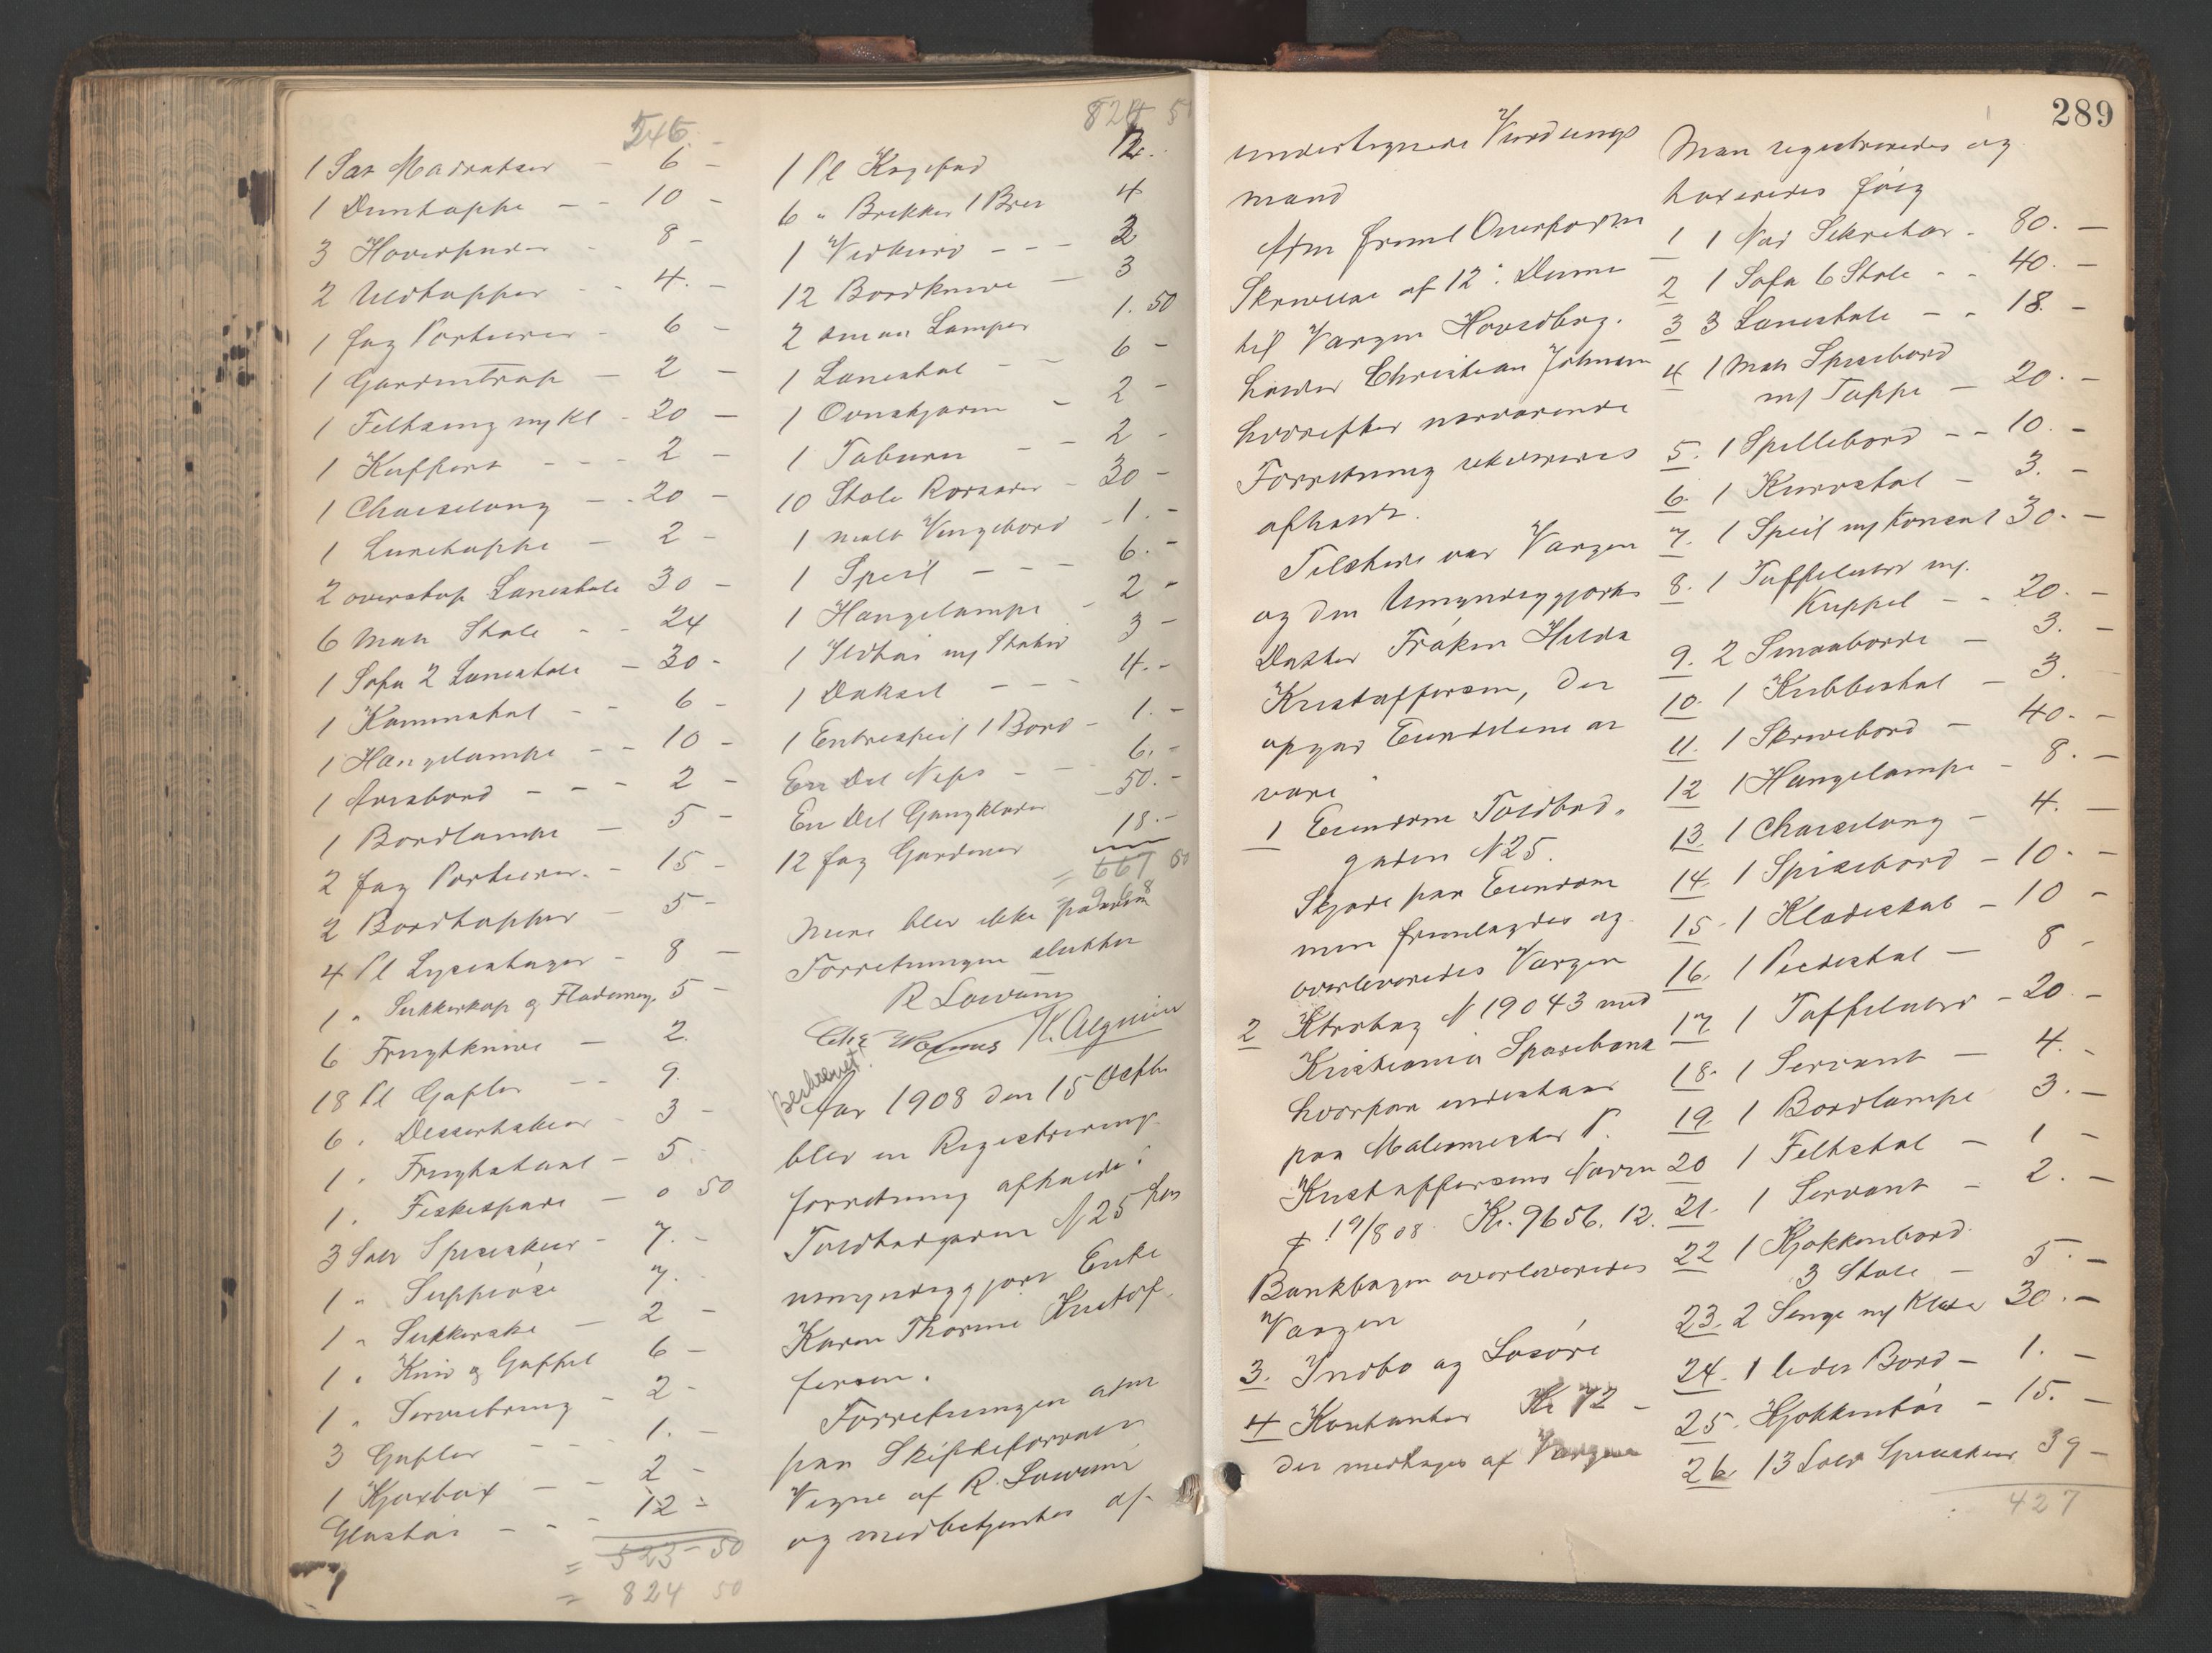 546.-
1 Sæt Madratser - 6 -
1 Duntæppe - - 10 -
3 Hovedpuder - 8 -
2 Uldtæpper - - 4. -
1 fag Portierer - 6 -
1 Gardintrap - 2 -
1 Feltseng m/ Kl - 20 -
1 Kuffert - - - 2 -
1 Chaiselong - - 20 -
1 Lunetæppe - 2 -
2 overstop Lænestole 30 -
6 Mah Stole - - 24
1 Sofa 2 Lænestole - 30 -
1 Kammestol - - 6 -
1 Hængelampe - - 10 -
1 Avisbord - - - 2 -
1 Bordlampe - 5 -
2 fag Portierer. - 15 -
2 Bordtæpper - 5 -
4 Pl Lysestager - 8 -
1 " Sukkerkop & Flødemug. 5 -
6 Frugtknive - 2.
18 Pl Gafler - - 9.
6 " Dessertskeer - 3 -
1 " Frugtskaal - 5.
1 " Fiskespade - 0 50
3 Sølv Spiseskeer - 7. -
1 " Suppeøse 7.
1 " Sukkerske - 2 -
1 " Kniv & Gaffel 6 -
1 " Serviebring - 2 -
3 Gafler - - - 1. -
1 Kjørbox - - 2 -
Glastøi - - - 12 -
= 523 - 50
= 824 50
824 50
1 Pl Kagefad 12.
6 " Brikker 1 Bret 4
1 Vedkurv - - - 2
12 Bordknive - 3
2 smaa Lamper 1. 50
1 Lænestol - - 6 -
1 Ovnskjærm - 2 -
1 Taburet - - 2 -
10 Stole Rorsæder - 30 -
1 malt Vingebord - 1. -
1 Speil - - - 6. -
1 Hængelampe - 2 -
1 Ildtøi m/ Stativ 3 -
1 Dækset - - - 4. -
1 Entrespeil 1 Bord - 1. -
En Del Nips - - 6. -
En Del Gangklæder - 50. -
12 fag Gardiner 18. -
= 667 50
968
Mere blev ikke paavist
Forretningen sluttet
R Lowumi
Beskrevet.
Aar 1908 den 15 Octbr
blev en Registrerings
forretning afholdt i
Toldbodgaden N 25 hos
umyndiggjort Enke
Karen Thorine Kristof
fersen.
Forretningen adm
paa Skifteforval
Vegne af R. Lowumi
og medbetjentes af
289
undertegnede Vurderings
mand
Man fremL Overform
Skrivelse af 12: Denne
til Værgen Hovedbog.
holder Christian Johnsen
hvorefter nærværende
Forretning rekvireres
afholdt.
Tilstede var Værgen
og den Umyndiggjortes
Datter Frøken Hilda
Kristoffersen, der
opgav Eiendelene at
være
1 Eiendom Toldbod-
gaden N 25.
Skjøde paa Eiendom
men fremlagdes og
overleveredes Værgen
2 Ktrabog N 19043 med
Kristiania Sparebank
hvorpaa indestaar
paa Malermester P.
Kristoffersens Navn
pr 19/8 08. Kr. 9656. 12.
Bankbogen overleveredes
Værgen
3. Indbo og Løsøre
4 Kontanter Kr 72 -
der modtages af Værgen
Man registreredes og
taxeredes følg
1 1 Nød Sekretær - 80. -
2 1 Sofa 6 Stole - - 40. -
3 3 Lænestole - - 18. -
4 1 Mah Spisebord
m/ Tæppe - 20. -
5. 1 Spillebord - - 10. -
6. 1 Kurvstol - 3. -
7. 1 Speil m/ Konsol 30. -
8. 1 Taffeluhr m/.
Kuppel - - 20. -
9. 2 Smaaborde - 3. -
10. 1 Kubbestol - 3. -
11. 1 Skrivebord - 40. -
12 1 Hængelampe - 8. -
13. 1 Chaiselong - 4. -
14. 1 Spisebord - 10. -
15. 1 Klædeskab - 10 -
16. 1 Piedestal - 8 -
17. 1 Taffeluhr - 20. -
18. 1 Servant - 4. -
19. 1 Bordlampe 3. -
20 1 Feltstol - 1 -
21. 1 Servant - 2. -
22 1 Kjøkkenbord
3 Stole - 5. -
23. 2 Senge m/ Klæder 30. -
24. 1 lidet Bord - 1. -
25. Kjøkkentøi - 15. -
26. 13 Sølv Spiseskeer 39 -
427